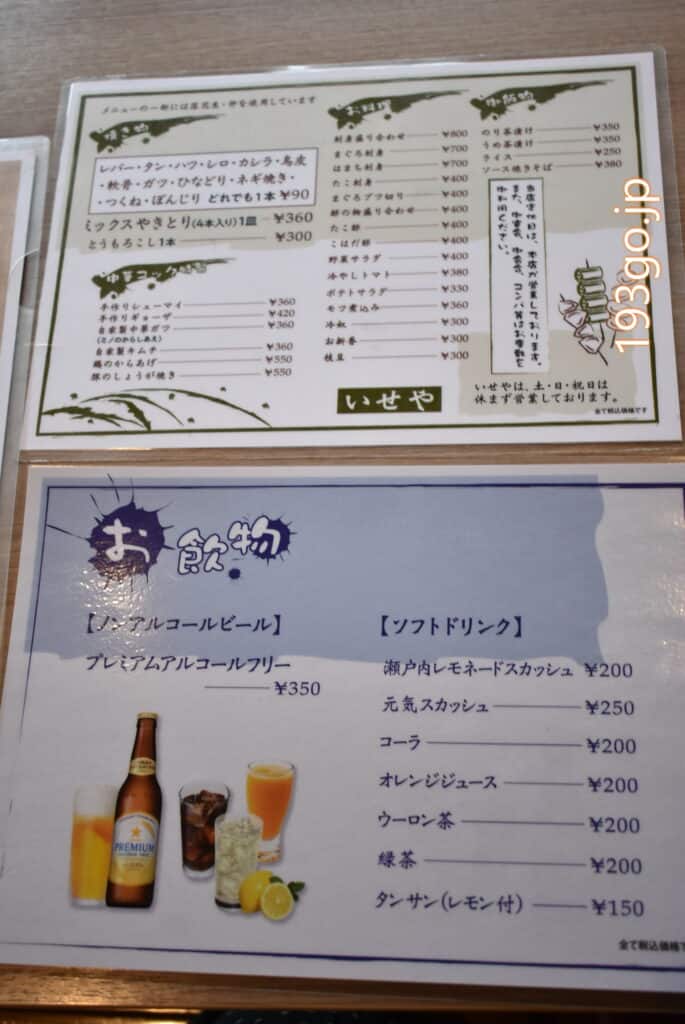 メニューの一部には落花生・卵を使用しています
焼き物
レバー・タン・ハツ・レロ・カシラ・鳥皮
・軟骨・ガツ・ひなどり・ネギ焼き・
・つくね・ぼんじり どれでも1本 ¥90
ミックスやきとり(4本入り)1皿 ¥360
とうもろこし1本 ¥300
中華コック特製
手作りシューマイ ¥360
手作りギョーザ ¥420
自家製中華ガツ ¥360
(ミノのからしあえ)
自家製キムチ ¥360
鶏のからあげ ¥550
豚のしょうが焼き ¥550
お料理
刺身盛り合わせ ¥800
まぐろ刺身 ¥700
はまち刺身 ¥700
たこ刺身 ¥400
まぐろブツ切り ¥400
酢の物盛り合わせ ¥400
たこ酢 ¥400
こはだ酢 ¥400
野菜サラダ ¥400
冷やしトマト ¥380
ポテトサラダ ¥330
モツ煮込み ¥360
冷奴 ¥300
お新香 ¥300
枝豆 ¥300
御飯物
のり茶漬け ¥350
うめ茶漬け ¥350
ライス ¥250
ソース焼きそば ¥380
当店定休日は、本店が営業しております。
また、御宴会、コンパ等はお電話を
御利用ください。
いせや
いせやは、土・日・祝日は
休まず営業しております。
全て税込価格です
193go.jp
お飲物
【ノンアルコールビール】
プレミアムアルコールフリー
¥350
PREMIUM
【ソフトドリンク】
瀬戸内レモネードスカッシュ ¥200
元気スカッシュ ¥250
コーラ ¥200
オレンジジュース ¥200
ウーロン茶 ¥200
緑茶 ¥200
タンサン(レモン付) ¥150
全て税込価格で